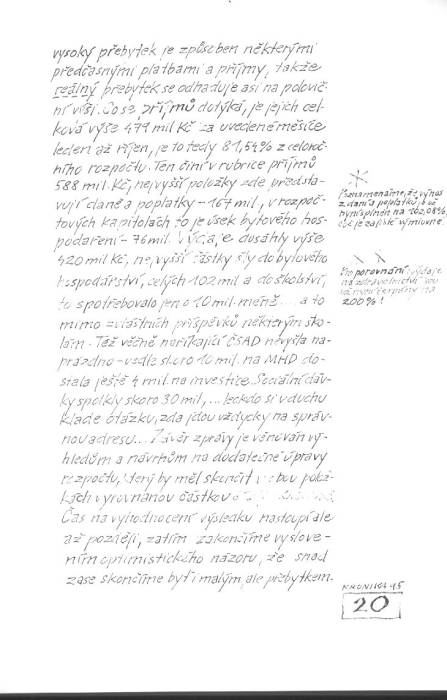 vysoký přebytek je způsoben některými
předčasnými platbami a příjmy, takže
reálný přebytek se odhaduje asi na polovič-
ní výši. Co se příjmů dotýká, je jejich cel-
ková výše 479 mil Kč za uvedené měsíce
leden až říjen, je to tedy 81,54% z celoroč-
ního rozpočtu. Ten činí v rubrice příjmů
588 mil. Kč, nejvyšší položky zde předsta-
vují daně a poplatky – 167 mil., v rozpoč-
tových kapitolách to je úsek bytového hos-
podaření – 76 mil. Výdaje dosáhly výše
420 mil Kč, nejvyšší částky šly do bytového
hospodářství, celých 102 mil a do školství,
to spotřebovalo jen o 10 mil. méně... a to
mimo zvláštních příspěvků některým ško-
lám. Též věčně naříkající ČSAD nevyšla na-
prázdno – vedle skoro 10 mil. na MHD do-
stala ještě 4 mil na investice. Sociální dáv-
ky spolkly skoro 30 mil, ... leckdo si v duchu
klade otázku, zda jdou vždycky na správ-
nou adresu... Závěr zprávy je věnován vý-
hledům a návrhům na dodatečné úpravy
rozpočtu, který by měl skončit v obou polož-
kách vyrovnanou částkou
Čas na vyhodnocení výsledku nastoupí ale
až později, zatím zakončíme vyslove-
ním optimistického názoru, že snad
zase skončíme byť i malým, ale přebytkem.
Poznamenáme, že výnos
z daní a poplatků, byl
nyní splněn na 102,08%,
což je zajisté výmluvné.
Pro porovnání výdaje
na zdravotnictví
čerpány na
200%!
KRONIKA 95
20